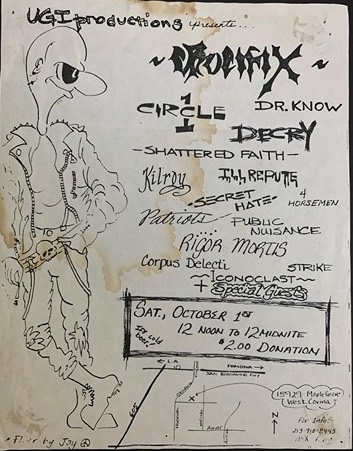 UGI productions presents...
~ CRUCIFIX ~
CIRCLE 1
DR. KNOW
DECRY
- SHATTERED FAITH -
Kilroy
ILL REPUTE
4 HORSEMEN
- SECRET HATE -
Patriots
PUBLIC NUISANCE
RIGOR MORTIS
Corpus Delecti
STRIKE
~ ICONOCLAST ~
+ Special Guests
SAT, OCTOBER 1st
12 NOON TO 12 MIDNITE
$2.00 DONATION
Icy cold
← L.A.
POMONA →
605
N
15929 Maplegrove
(West Covina)
For Info:
Flier by Jay